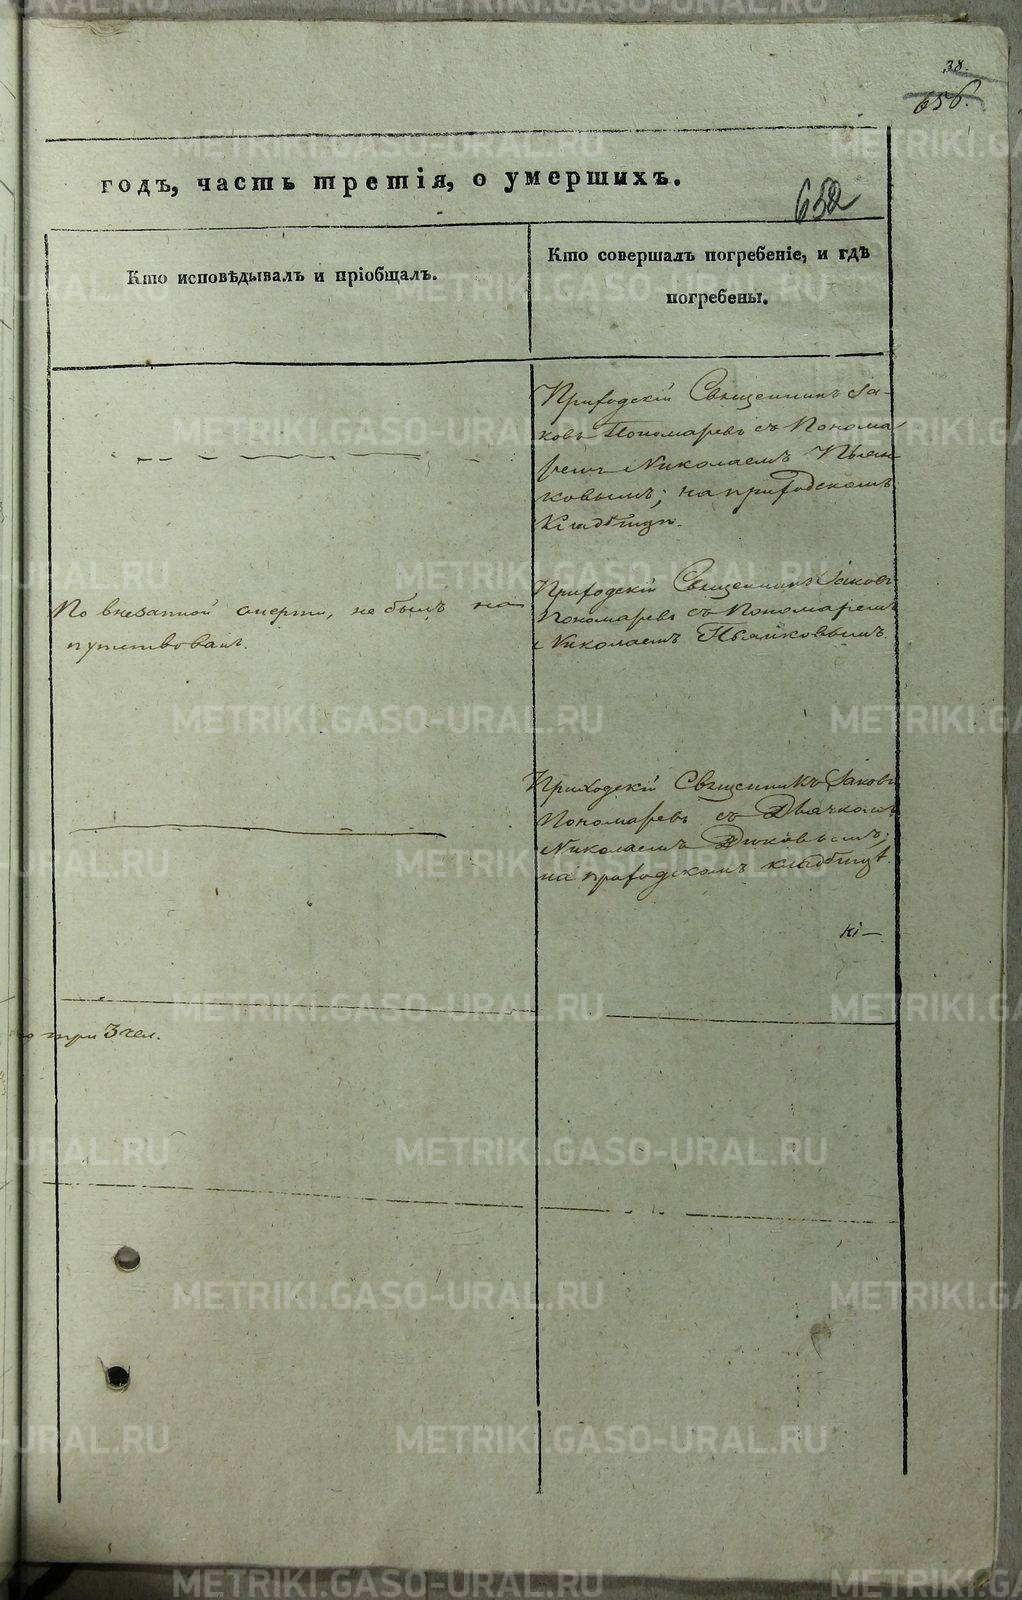 38.
656.
годъ, часть третія, о умершихъ.
652
Кто исповѣдывалъ и пріобщалъ.
Кто совершалъ погребеніе, и гдѣ
погребены.
Приходскій Священникъ Іа-
ковъ Пономаревъ съ Понома
ремъ Николаемъ Пьян-
ковымъ; на приходскомъ
Кладбищѣ.
По внезапной смерти, не былъ на
путствованъ.
Приходскій Священникъ Іаковъ
Пономаревъ съ Пономаремъ
Николаемъ Пьянковымъ.
Приходскій Священникъ Іаковъ
Пономаревъ съ Дьячкомъ
Николаемъ
на приходскомъ кладбищѣ.
кі—
три 3 чел.
METRIKI.GASO-URAL.RU